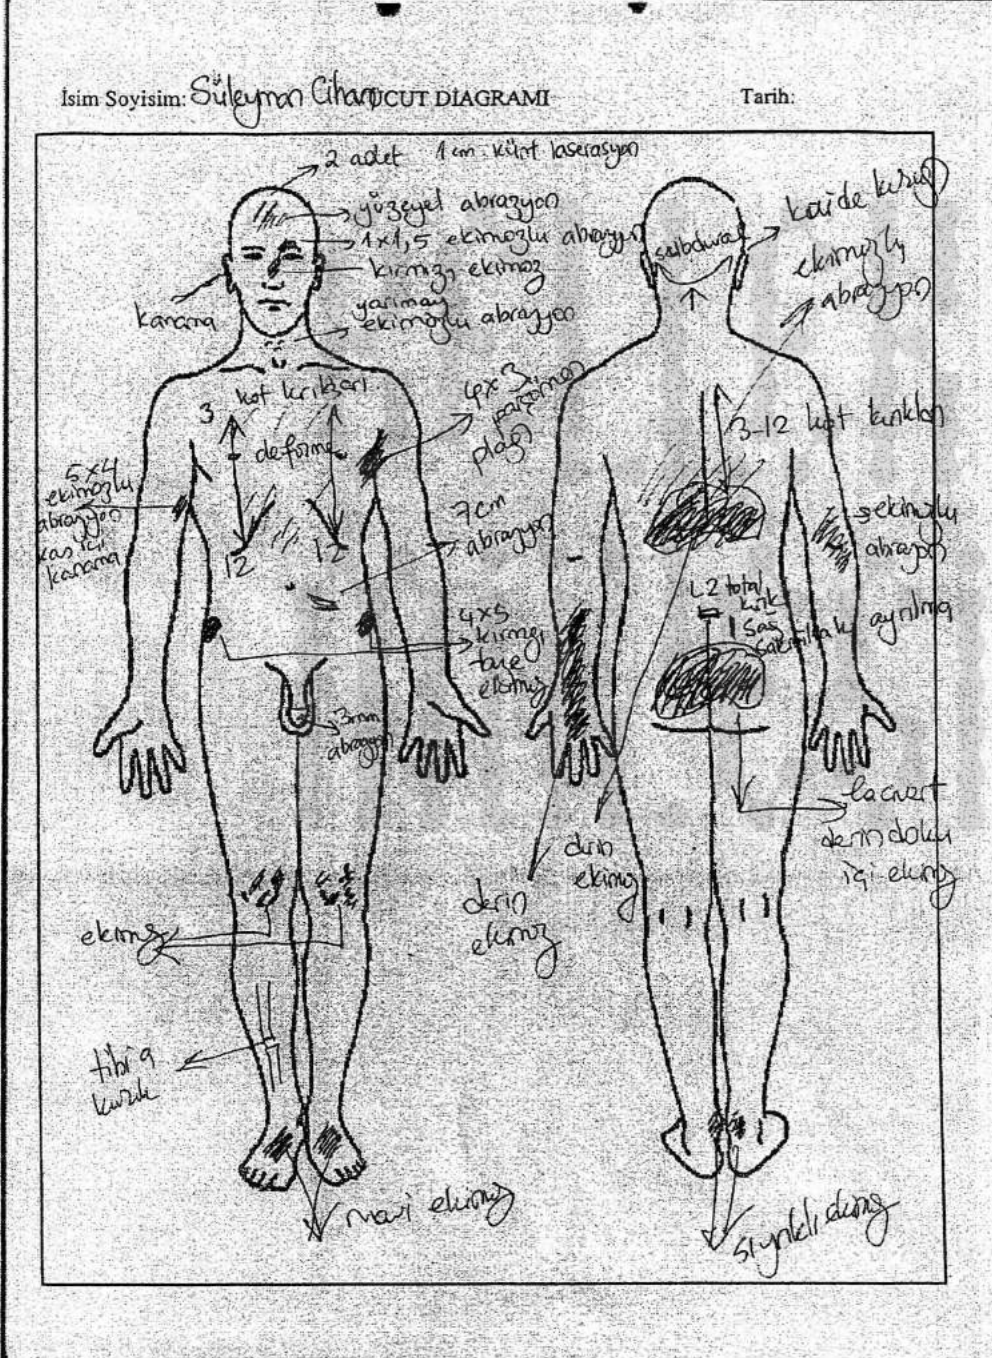 İsim Soyisim: Süleyman Cihan
VÜCUT DİAGRAMI
Tarih:
2 adet 1cm. künt laserasyon
yüzeyel abrazyon
1x1,5 ekimozlu abrazyon
kırmızı ekimoz
yarımay
ekimozlu abrazyon
kanama
kot kırıkları
3
deforme
12
12
4x3
parşömen
plağı
5x4
ekimozlu
abrazyon
kas içi
kanama
7cm
abrazyon
4x5
kırmızı
taze
ekimoz
3mm
abrazyon
ekimoz
tibia
kırık
mavi ekimoz
kaide kırığı
subdural
ekimozlu
abrazyon
3-12 kot kırıkları
ekimozlu
abrazyon
L2 total
kırık
sağ
sakroiliak
ayrılma
lacivert
derin doku
içi ekimoz
derin
ekimoz
derin
ekimoz
sıyrıklı ekimoz